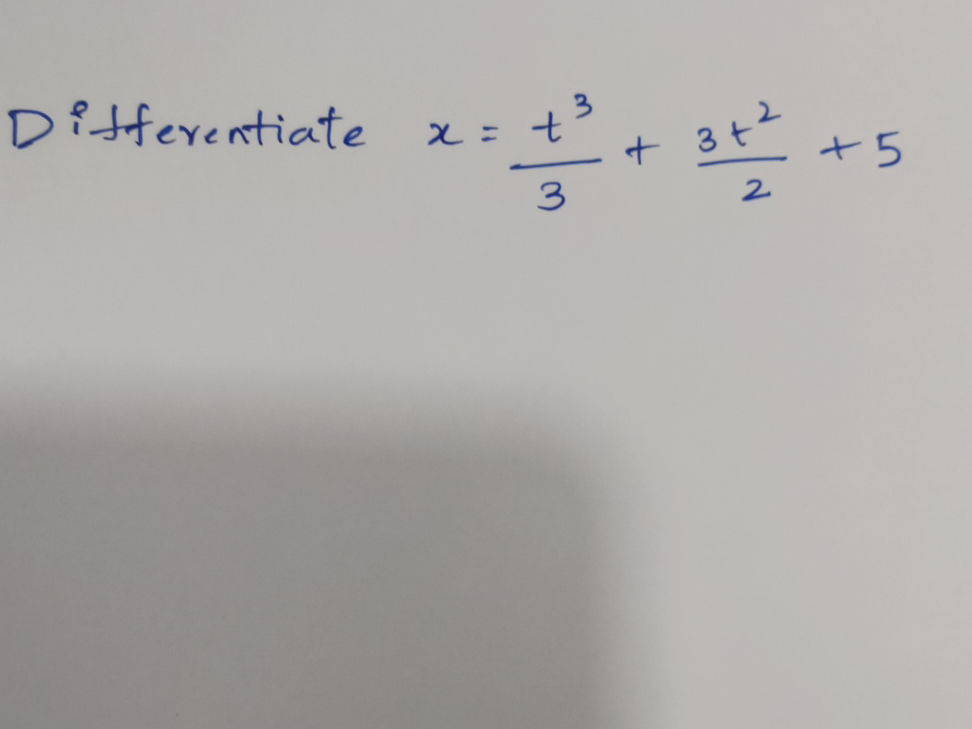 Differentiate x = t³/3 + 3t²/2 + 5